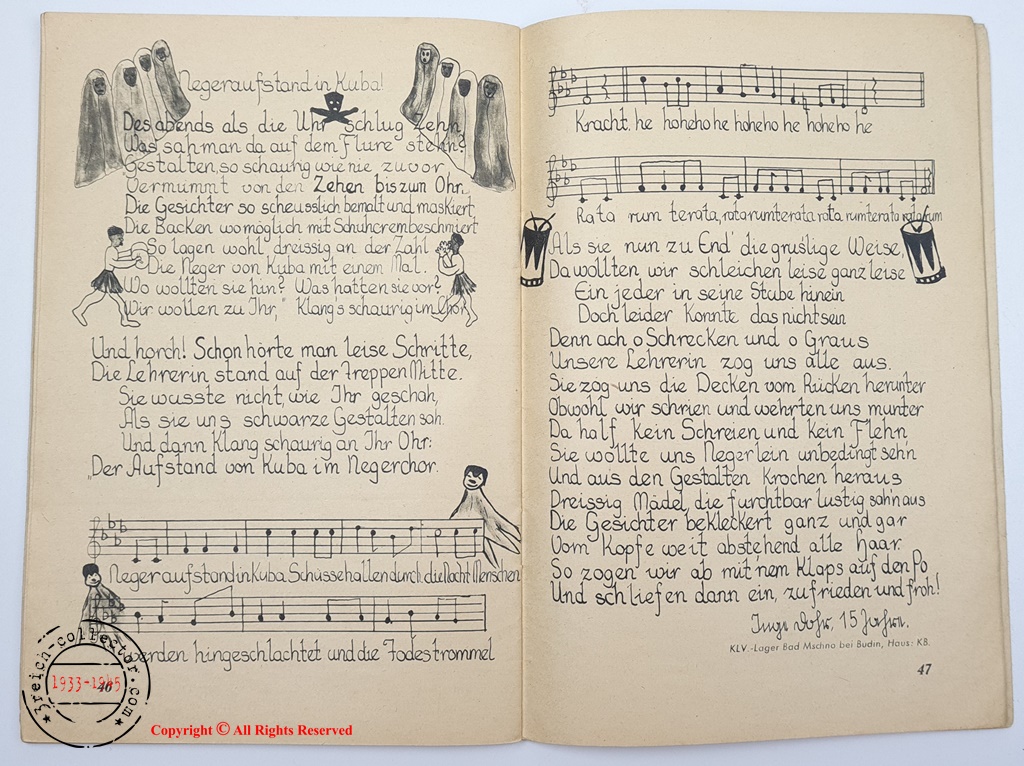 Negeraufstand in Kuba!
Des abends als die Uhr Schlug Zehn
Was sah man da auf dem Flure stehn?
Gestalten, so schaurig wie nie zuvor
Vermummt von den Zehen bis zum Ohr.
Die Gesichter so scheusslich bemalt und maskiert,
Die Backen womöglich mit Schuhcrem beschmiert
So lagen wohl dreissig an der Zahl
Die Neger von Kuba mit einem Mal.
Wo wollten sie hin? Was hatten sie vor?
Wir wollen zu Ihr," Klang's schaurig im Chor
Und horch! Schon hörte man leise Schritte,
Die Lehrerin stand auf der Treppen Mitte.
Sie wusste nicht, wie Ihr geschah,
Als sie uns schwarze Gestalten sah.
Und dann Klang schaurig an Ihr Ohr:
„Der Aufstand von Kuba im Negerchor.
Negeraufstand in Kuba. Schüsse hallen durch die Nacht Menschen
werden hingeschlachtet und die Todestrommel
46
3reich-collector.com
1933-1945
Copyright © All Rights Reserved
Kracht. he hoheho he hoheho he hoheho he
Rata rum terata, rata rumterata rata rumterata ratarum
Als sie nun zu End' die gruslige Weise,
Da wollten wir schleichen leise ganz leise
Ein jeder in seine Stube hinein
Doch leider Konnte das nicht sein
Denn ach o Schrecken und o Graus
Unsere Lehrerin zog uns alle aus.
Sie zog uns die Decken vom Rücken herunter
Obwohl wir schrien und wehrten uns munter
Da half Kein Schreien und Kein Flehn
Sie wollte uns Negerlein unbedingt sehn
Und aus den Gestalten Krochen heraus
Dreissig Mädel, die furchtbar lustig sah'n aus
Die Gesichter bekleckert ganz und gar
Vom Kopfe weit abstehend alle Haar.
So zogen wir ab mit 'nem Klaps auf den Po
Und schliefen dann ein, zufrieden und froh!
15 Jahre.
KLV.-Lager Bad Mschno bei Budin, Haus: KB.
47